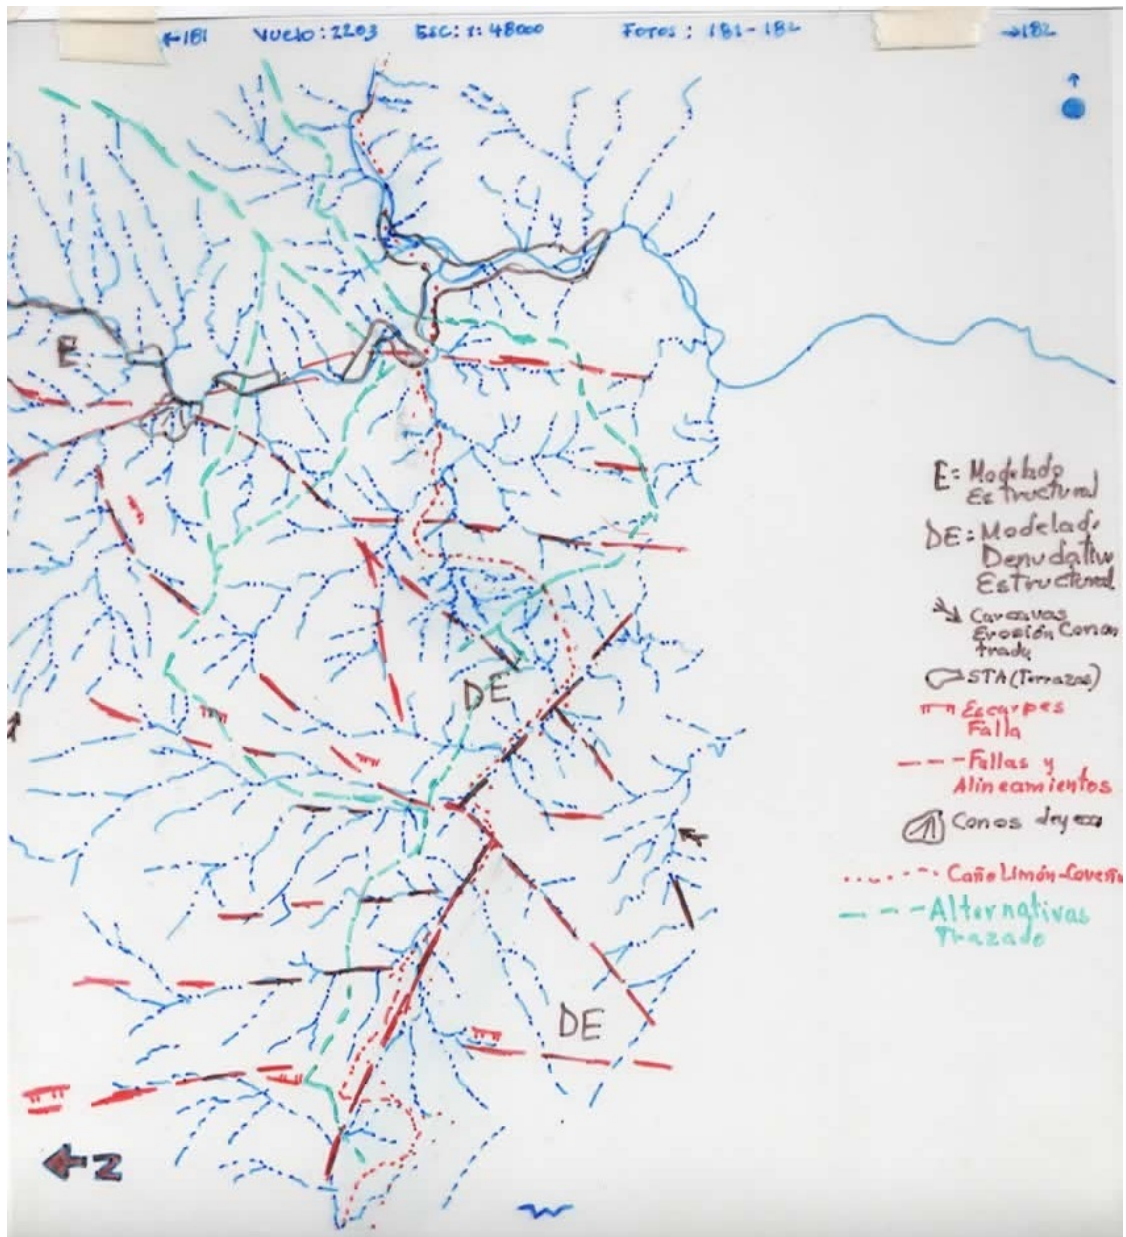 ←181 VUELO: 2203 ESC: 1: 48000 FOTOS: 181-182 →182
E
E= Modelado
Estructural
DE= Modelad.
Denudativo
Estructural
Carcavas
Erosión Concen
trada
STA (Terrazas)
Escarpes
Falla
Fallas y
Alineamientos
Conos
Caño Limón-Coveñas
Alternativas
Trazado
DE
DE
N